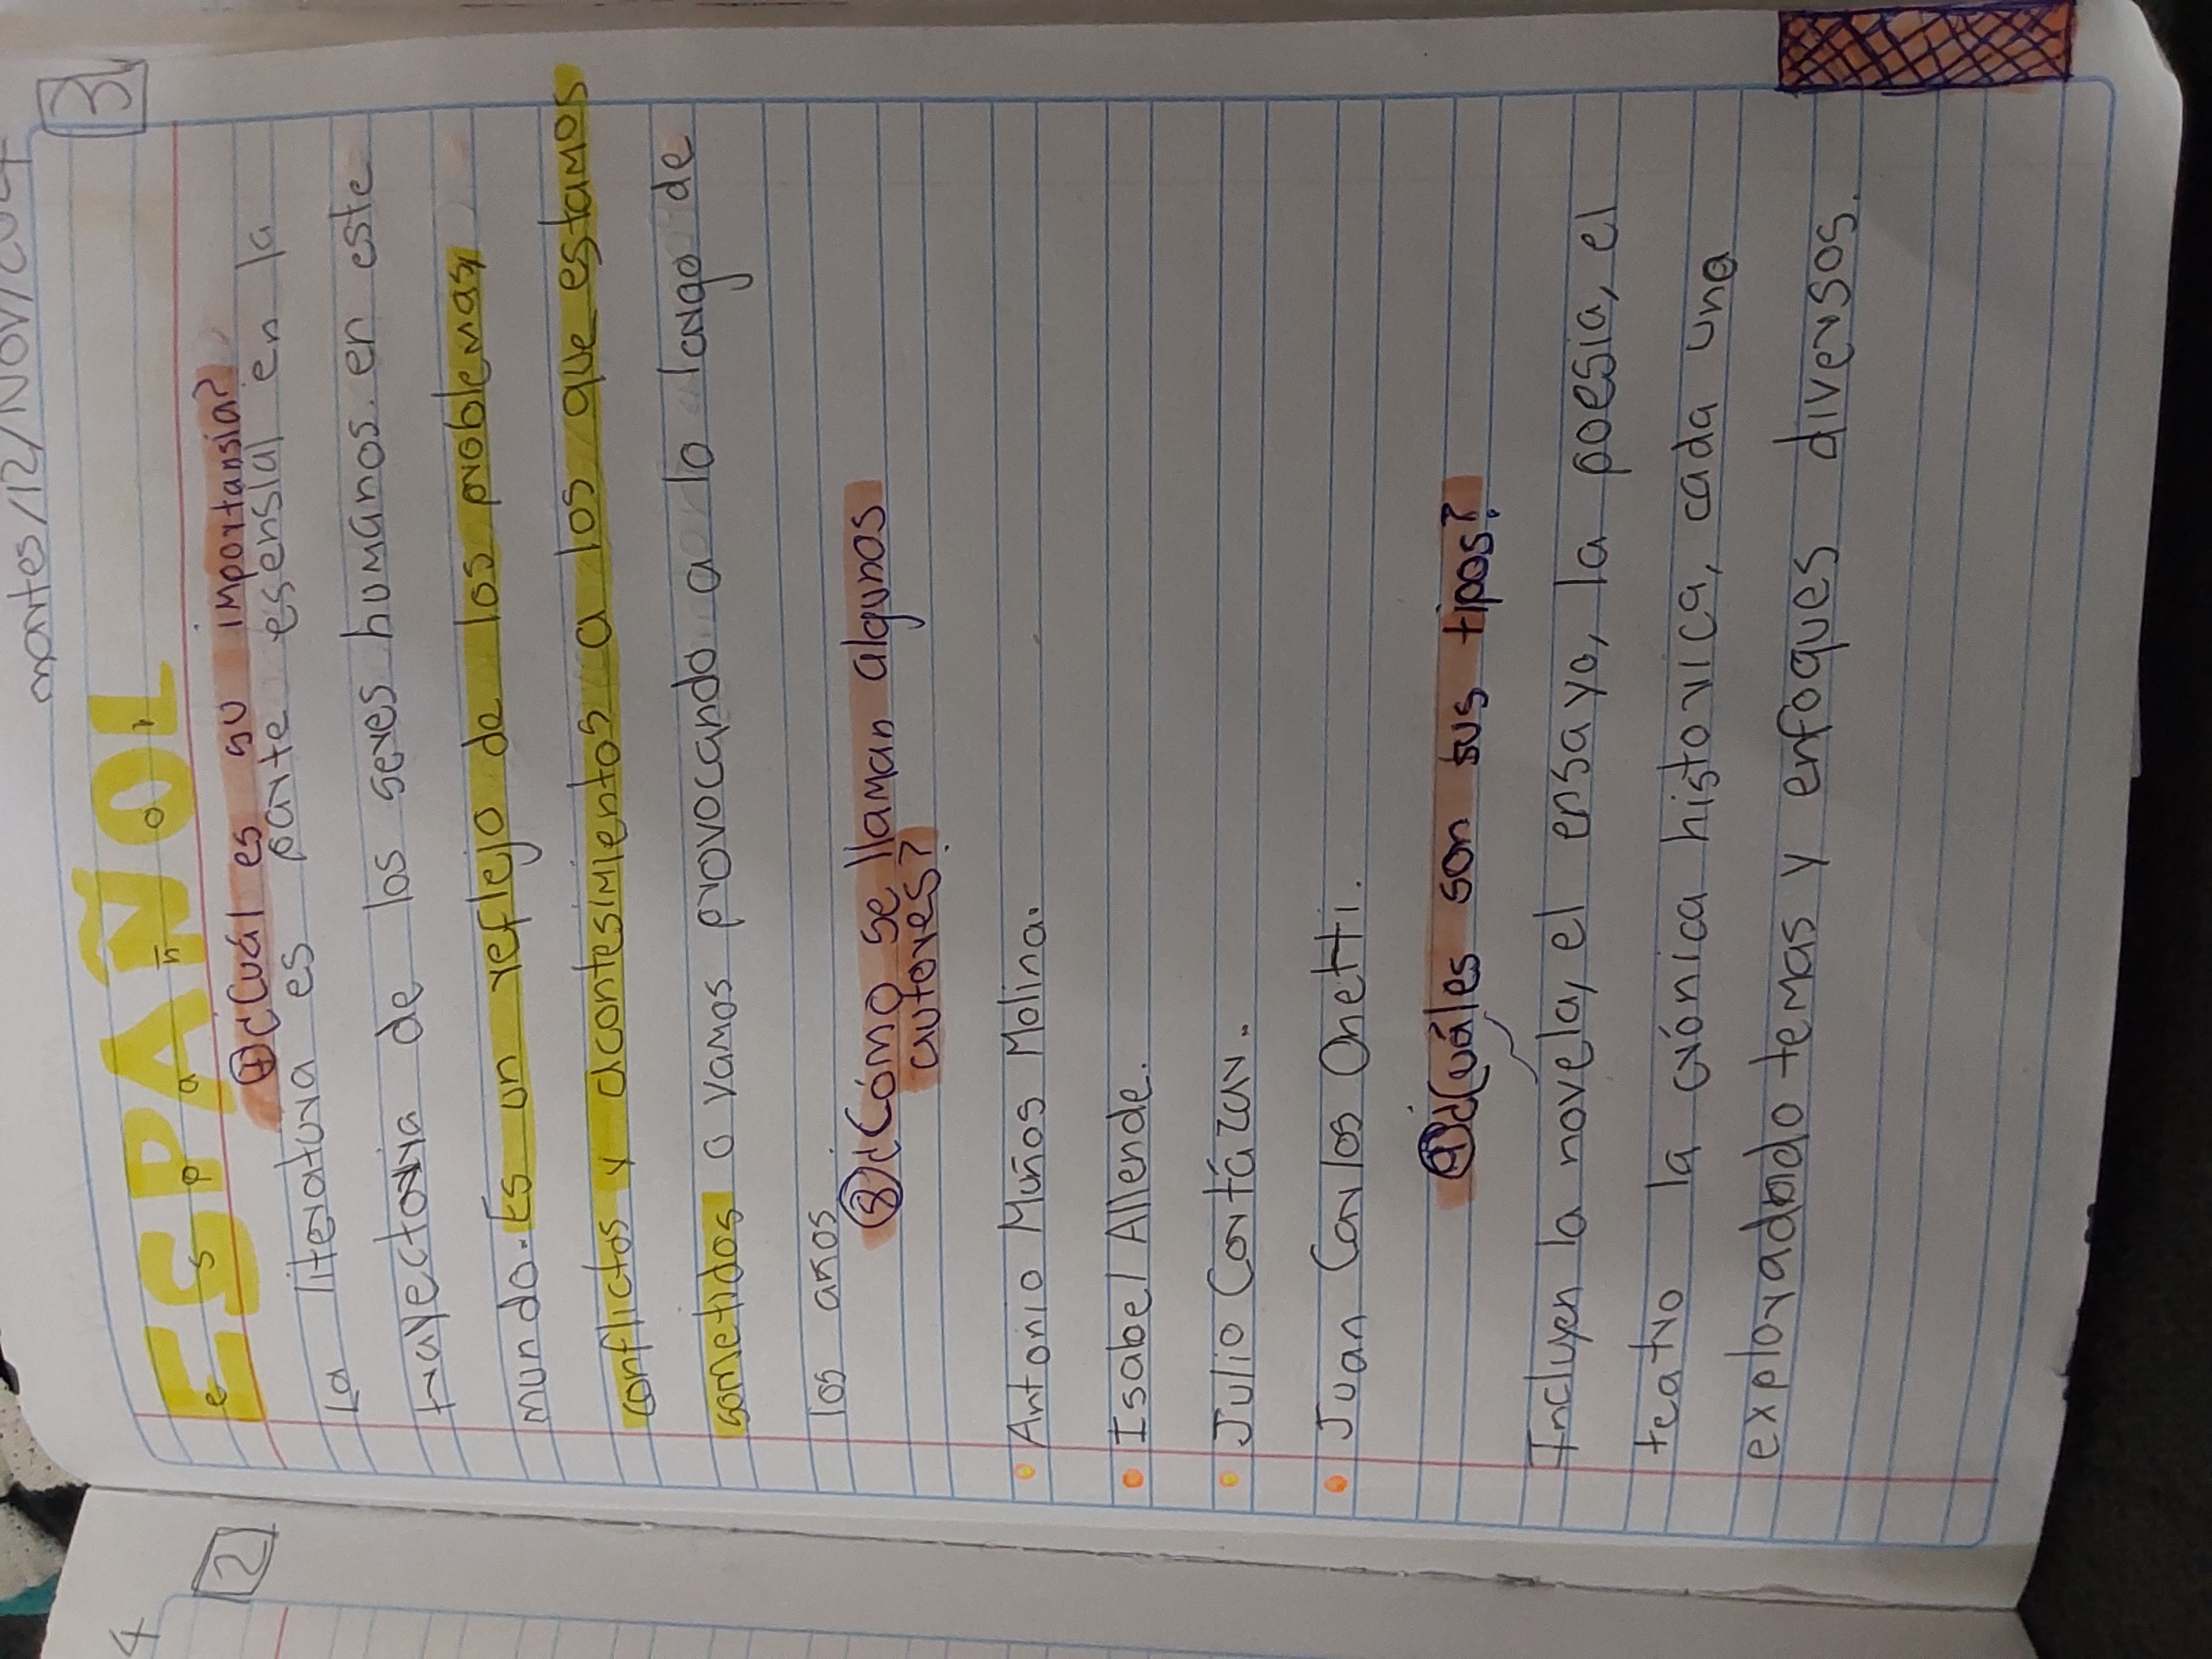 martes/12/Nov/2024
3
ESPAÑOL
e s p a ñ o l
7 ¿Cuál es su importansia?
La literatura es parte esensial en la
trayectoria de los seres humanos en este
mundo. Es un reflejo de los problemas,
conflictos y acontesimientos a los que estamos
sometidos o vamos provocando a lo largo de
los años
8 ¿Cómo se llaman algunos
autores?
• Antonio Muños Molina.
• Isabel Allende.
• Julio Cortázar.
• Juan Carlos Onetti.
¿Cuáles son sus tipos?
Incluyen la novela, el ensayo, la poesia, el
teatro la crónica historica, cada una
explorado temas y enfoques diversos.
4
2